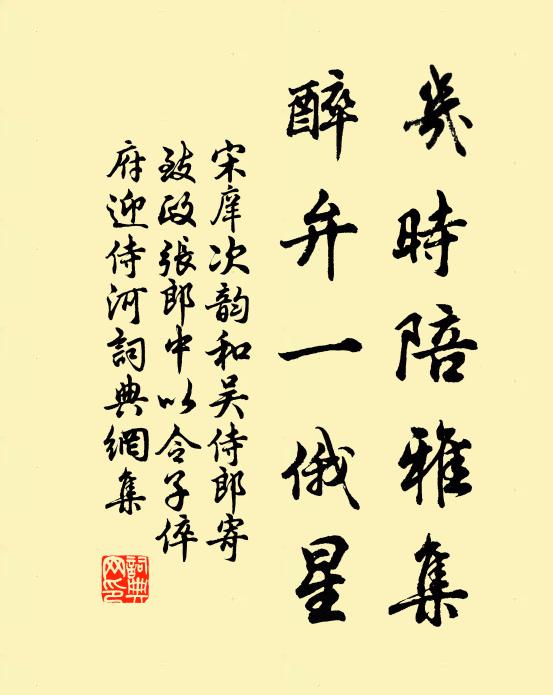 幾時陪雅集
醉弁一俄星
宋庠次韵和吴侍郎寄
致政張郎中以令子倅
府迎侍河詞典網集
詞典网印